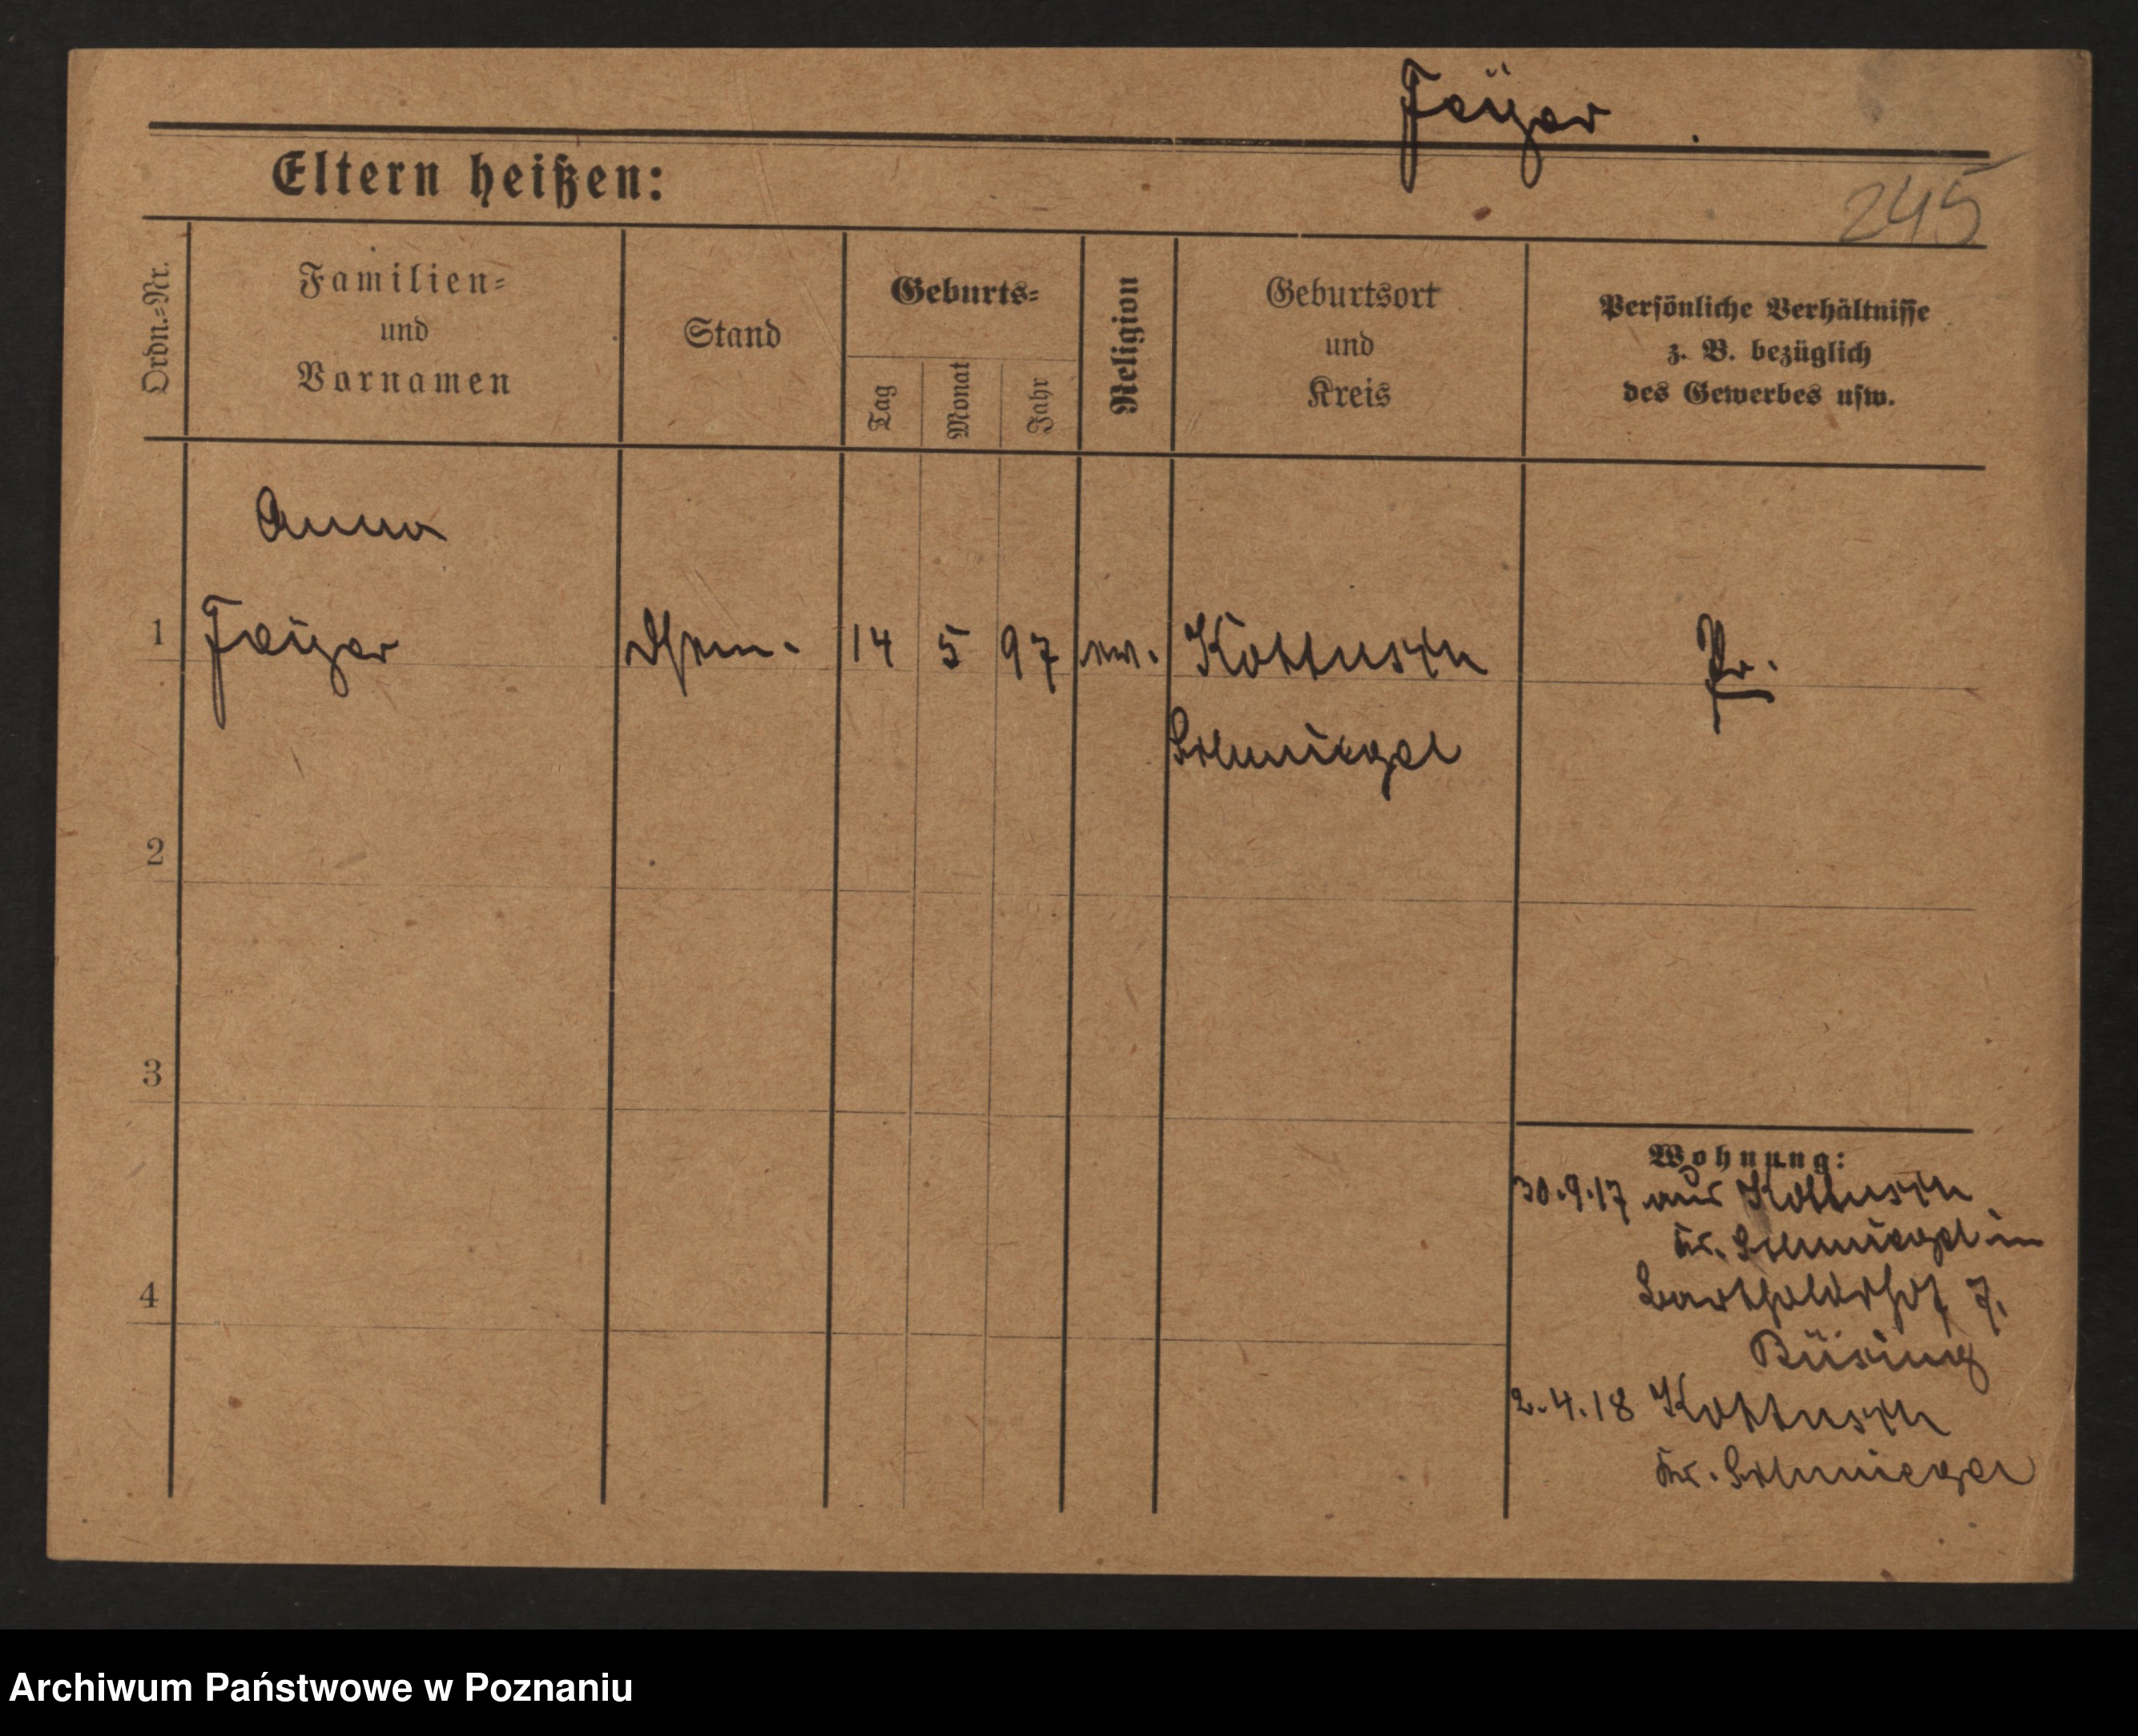 Feÿer
Eltern heißen:
245
Ordn.-Nr.
Familien-
und
Vornamen
Stand
Geburts-
Tag
Monat
Jahr
Religion
Geburtsort
und
Kreis
Persönliche Verhältnisse
z. B. bezüglich
des Gewerbes usw.
Anna
1 14 5 97 ev. Kottusch Pr.
Schmiegel
2
3
4
Wohnung:
30.9.17 aus Kottusch
Kr. Schmiegel in
7,
Büsing
2.4.18 Kottusch
Kr. Schmiegel
Archiwum Państwowe w Poznaniu